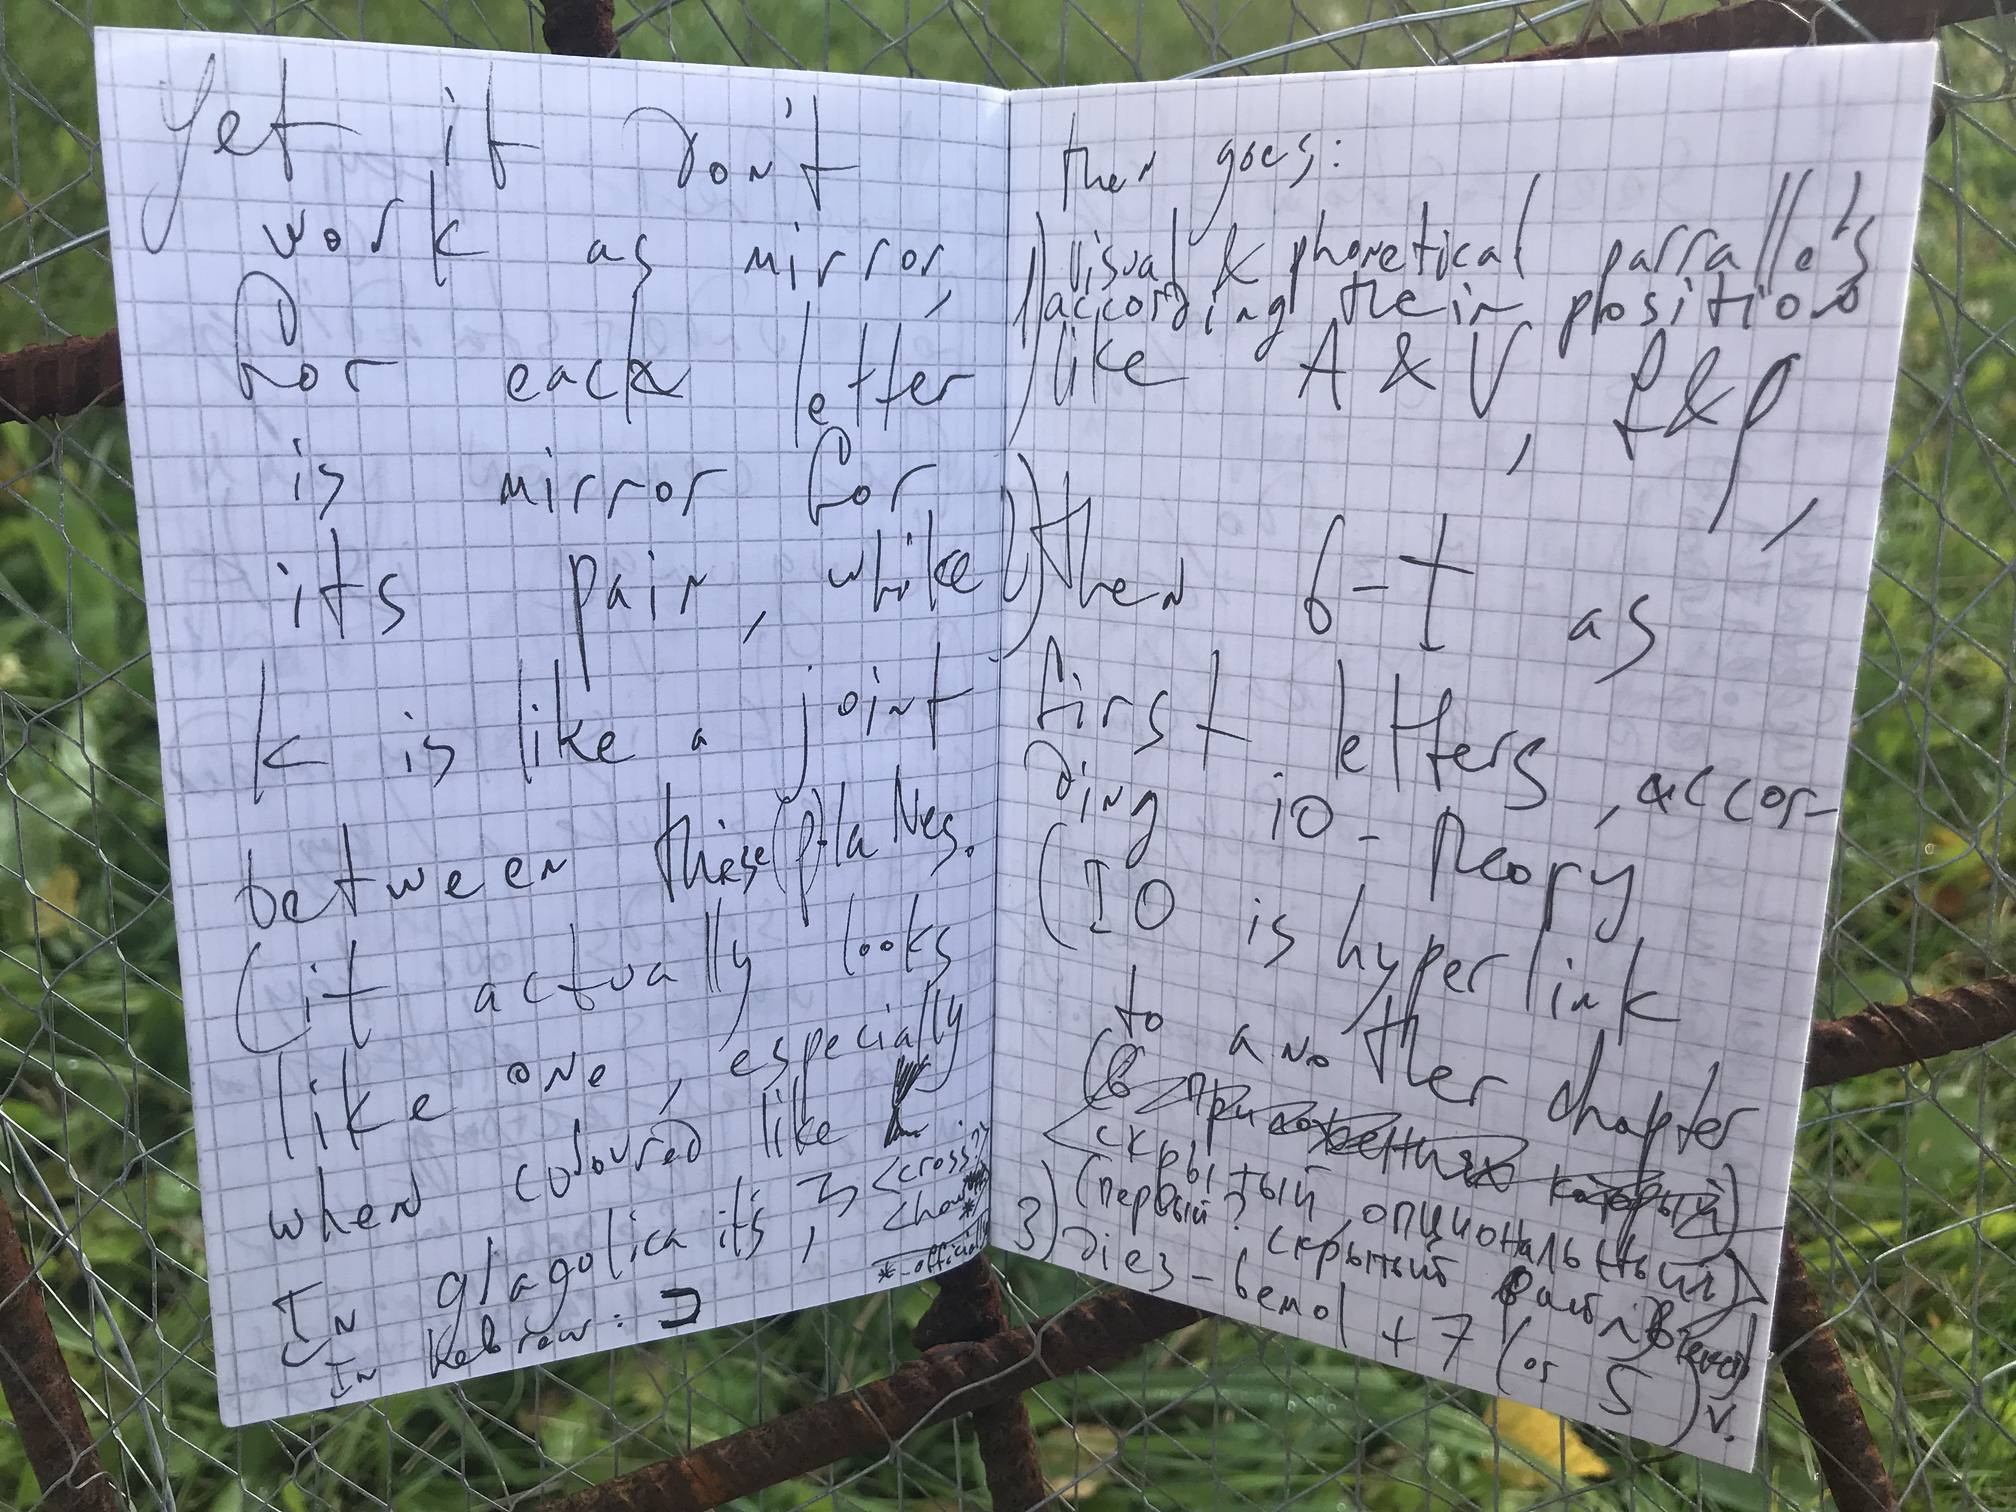 Yet it don't
work as mirror,
for each letter
is mirror for
its pair, while
k is like a joint
between these planes.
(it actually looks
like one, especially
when coloured like
In glagolica its, <cross?>
*-officially
In Hebrew: כ
then goes:
1) visual & phonetical parralels
according their positions
like A & V, f & p,
2) then b-t as
first letters, accor-
ding io-theory
(IO is hyperlink
to another chapter
(в приложениях который)
<скрытый, опциональный>
(первый? скрытый
3) diez-bemol +7 (or S) v.